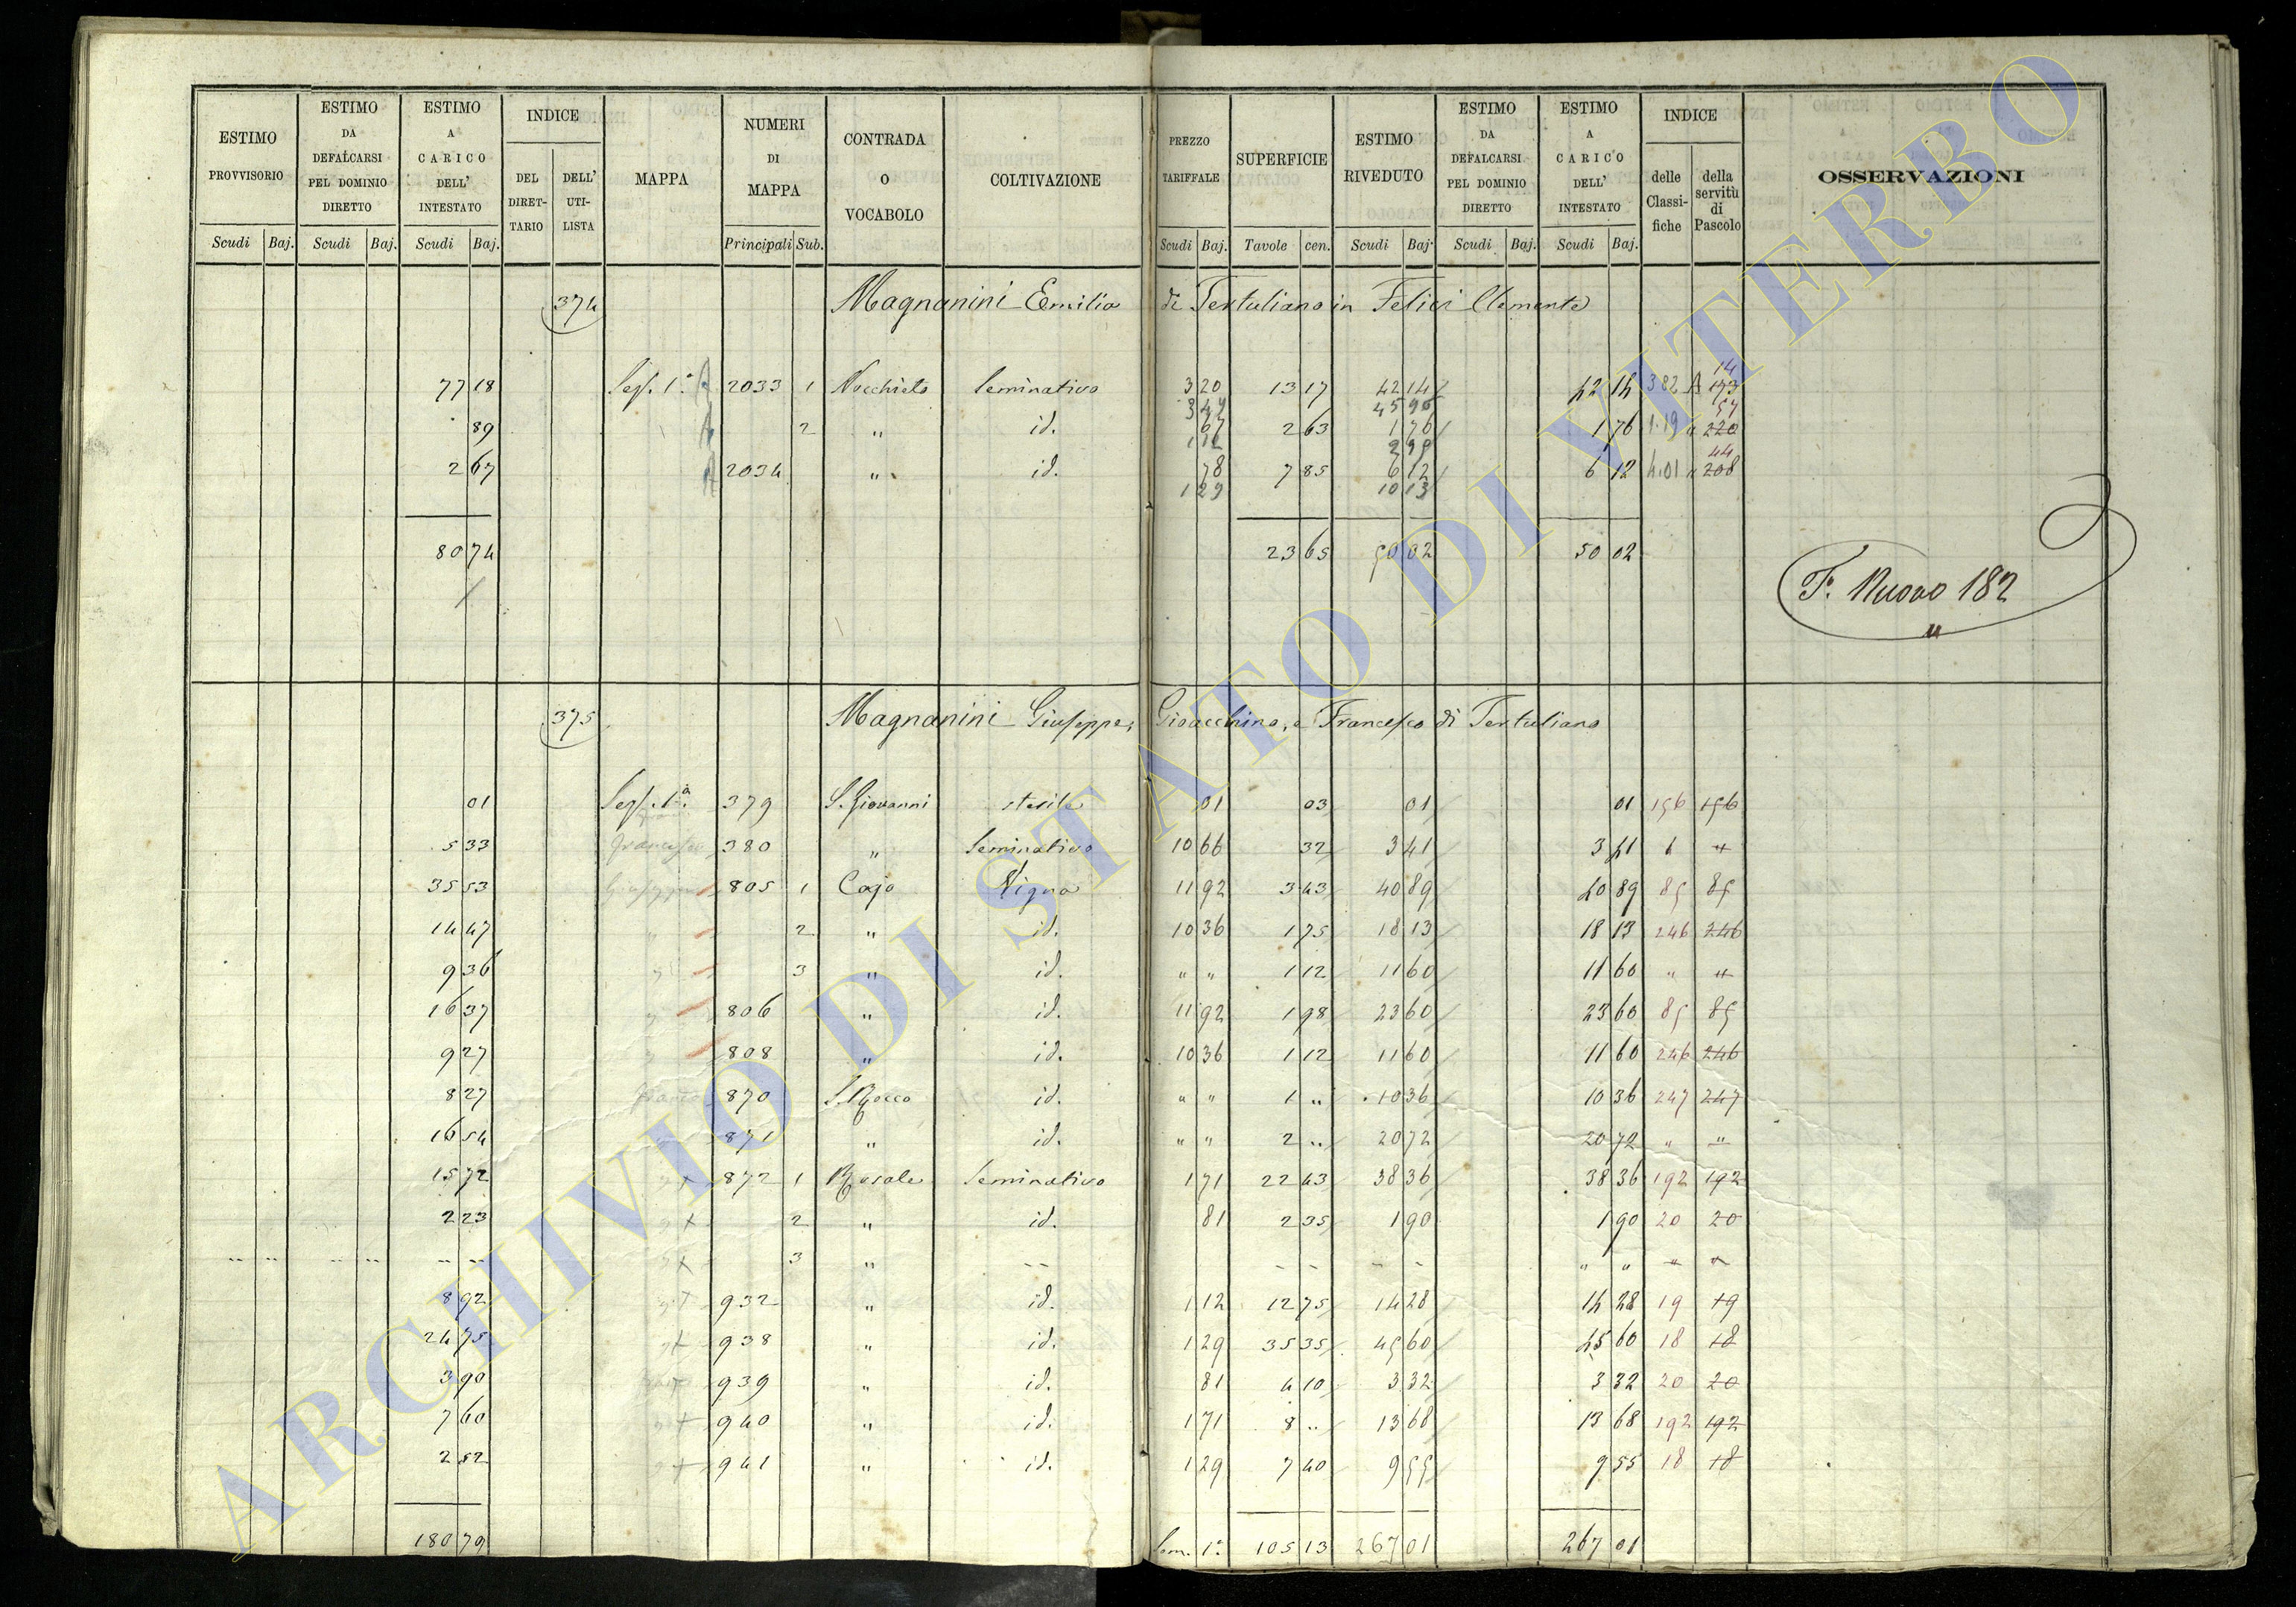 ESTIMO PROVVISORIO | ESTIMO DA DEFALCARSI PEL DOMINIO DIRETTO | ESTIMO A CARICO DELL' INTESTATO | INDICE | MAPPA | NUMERI DI MAPPA | CONTRADA O VOCABOLO | COLTIVAZIONE | PREZZO TARIFFALE | SUPERFICIE | ESTIMO RIVEDUTO | ESTIMO DA DEFALCARSI PEL DOMINIO DIRETTO | ESTIMO A CARICO DELL' INTESTATO | INDICE | OSSERVAZIONI
DEL DIRET-TARIO | DELL' UTI-LISTA | delle Classi-fiche | della servitù di Pascolo
Scudi | Baj. | Scudi | Baj. | Scudi | Baj. | Principali | Sub. | Scudi | Baj. | Tavole | cen. | Scudi | Baj. | Scudi | Baj. | Scudi | Baj.
374 Magnanini Emilia di Tertuliano in Felici Clemente
14
77 18 Sez. 1ª 2033 1 Nocchieto Seminativo 3 20 13 17 42 14 42 14 382 A 173
3 49 45 96 57
89 2 " id. 67 2 63 1 76 1 76 1.19 " 220
1 12 2 95 44
2 67 2034 " id. 78 7 85 6 12 6 12 4.01 " 208
1 29 10 13
80 74 23 65 50 02 50 02
Fº Nuovo 182
"
375 Magnanini Giuseppe, Gioacchino, e Francesco di Tertuliano
01 Sez. 1ª 379 S. Giovanni sterile 01 03 01 01 156 156
5 33 Francesco 380 " Seminativo 10 66 32 3 41 3 41 6 "
35 53 Giuseppe 805 1 Cajo Vigna 11 92 3 43 40 89 40 89 85 85
14 47 " 2 " id. 10 36 1 75 18 13 18 13 246 246
9 36 " 3 " id. " " 1 12 11 60 11 60 " "
16 37 " 806 " id. 11 92 1 98 23 60 23 60 85 85
9 27 " 808 " id. 10 36 1 12 11 60 11 60 246 246
8 27 870 S. Rocco id. " " 1 " 10 36 10 36 247 247
16 54 871 " id. " " 2 " 20 72 20 72 " "
15 72 872 1 Rosale Seminativo 1 71 22 43 38 36 38 36 192 192
2 23 2 " id. 81 2 35 1 90 1 90 20 20
" " " " " " 3 " - - - - - - " " " "
8 92 932 " id. 1 12 12 75 14 28 14 28 19 19
24 75 938 " id. 1 29 35 35 45 60 45 60 18 18
3 90 939 " id. 81 4 10 3 32 3 32 20 20
7 60 940 " id. 1 71 8 " 13 68 13 68 192 192
2 52 941 " id. 1 29 7 40 9 55 9 55 18 18
180 79 Som. 1ª 105 13 267 01 267 01
ARCHIVIO DI STATO DI VITERBO